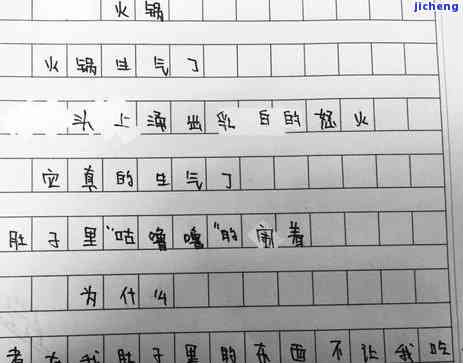 jicheng
火锅
火锅生气了
头上涌出乳白的怒火
它真的生气了
肚子里“咕噜噜”的闹着
为什么
煮在我肚子里的东西不让我吃